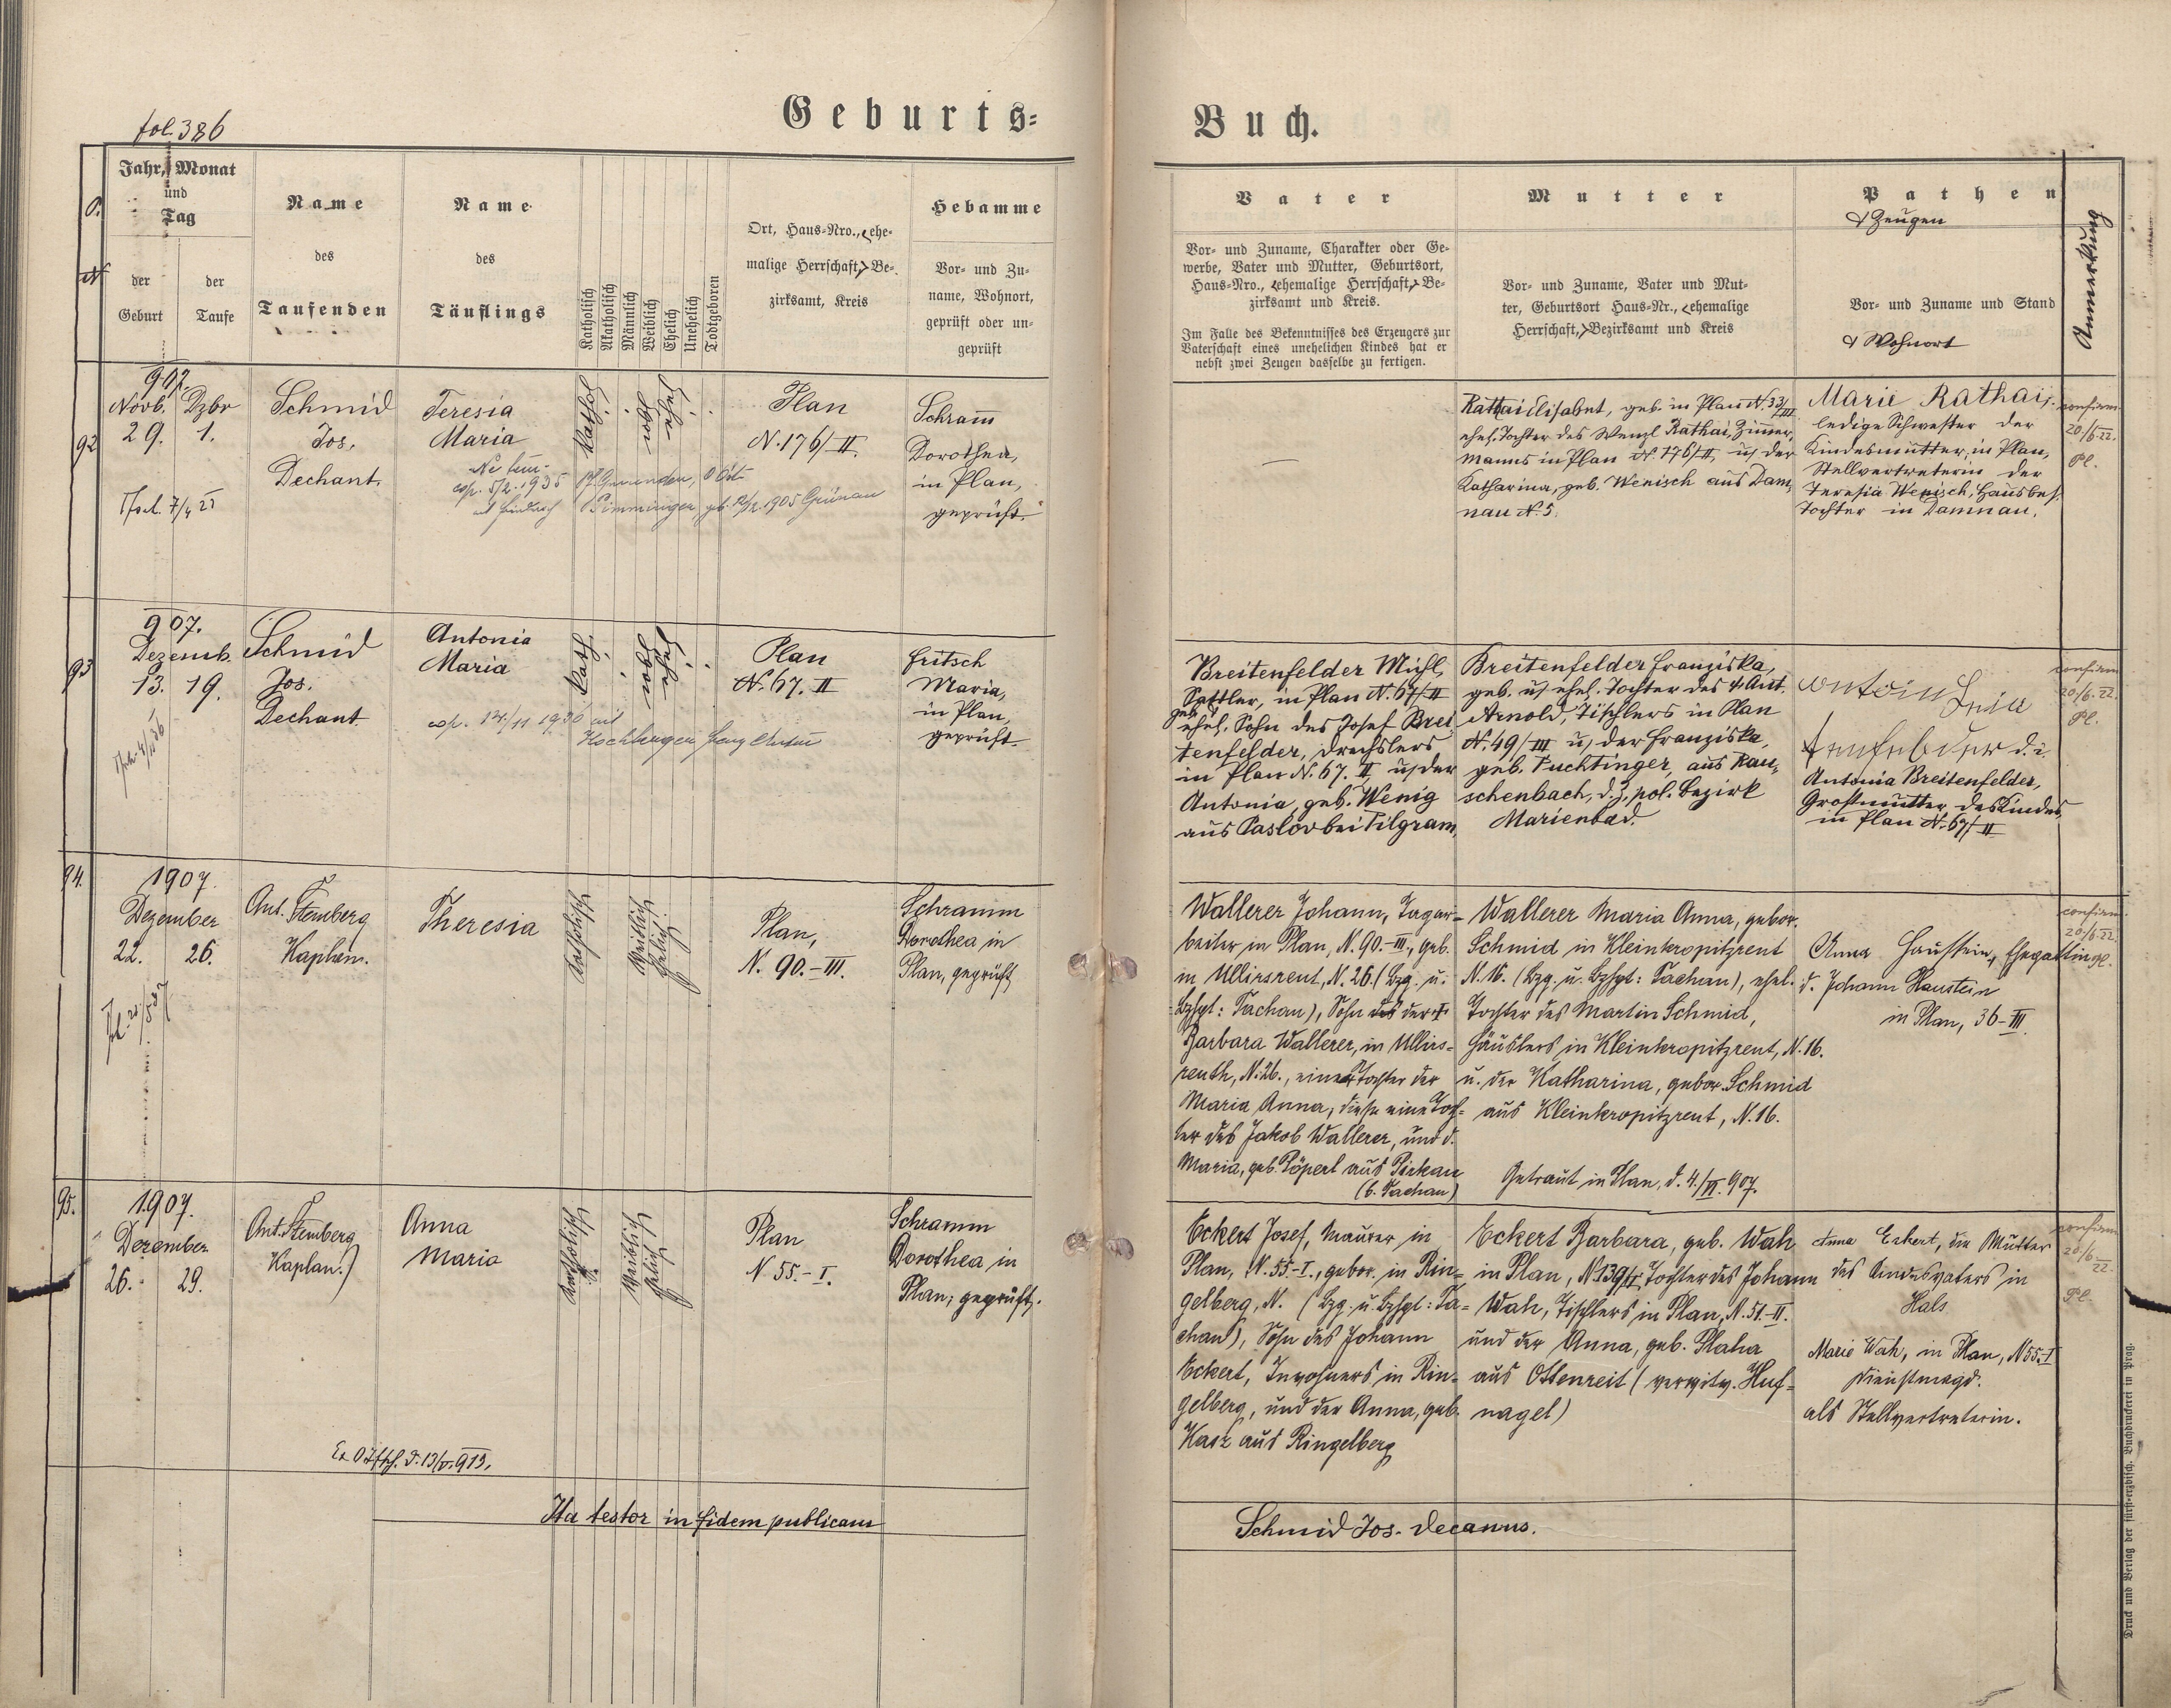 fol. 386
Geburts-
Buch.
Jahr, Monat
und
Tag
der
Geburt
der
Taufe
Name
des
Taufenden
Name
des
Täuflings
Katholisch
Akatholisch
Männlich
Weiblich
Ehelich
Unehelich
Todtgeboren
Ort, Haus-Nro., ehe-
malige Herrschaft, Be-
zirksamt, Kreis
Hebamme
Vor- und Zu-
name, Wohnort,
geprüft oder un-
geprüft
Vater
Vor- und Zuname, Charakter oder Ge-
werbe, Vater und Mutter, Geburtsort,
Haus-Nro., ehemalige Herrschaft, Be-
zirksamt und Kreis.
Im Falle des Bekenntnisses des Erzeugers zur
Vaterschaft eines unehelichen Kindes hat er
nebst zwei Zeugen dasselbe zu fertigen.
Mutter
Vor- und Zuname, Vater und Mut-
ter, Geburtsort Haus-Nr., ehemalige
Herrschaft, Bezirksamt und Kreis
Pathen
& Zeugen
Vor- und Zuname und Stand
& Wohnort
Anmerkung
92
907.
Novb. Dzbr
29. 1.
Schmid
Jos.
Dechant.
Teresia
Maria
cop. 5/2. 1935
Pimminger geb. 1905 Grünau
Plan
N. 176/II.
Schram
Dorothea,
in Plan,
geprüft.
Rathai Elisabet, geb. in Plan N. 33/III
ehel. Tochter des Wenzl Rathai, Zimmer-
manns in Plan N. 176/II, u der
Katharina, geb. Wenisch aus Dam-
nau N. 5.
Marie Rathai,
ledige Schwester der
Kindesmutter, in Plan,
Stellvertreterin der
Teresia Wenisch, Hausbes.
Tochter in Damnau.
confirm
20./6.22.
Pl.
93
907.
Dezemb.
13. 19.
Schmid
Jos.
Dechant
Antonia
Maria
cop. 14./11 1930 mit
Kath.
Plan
N. 67. II
Fritsch
Maria,
in Plan,
geprüft.
Breitenfelder Michl,
Sattler, in Plan N. 67/II
geb.
ehel. Sohn des Josef Brei
tenfelder, Drechslers
in Plan N. 67. II, u der
Antonia, geb. Wenig
aus Paslov bei Pilgram,
Breitenfelder Franziska,
geb. u ehel. Tochter des Ant.
Arnold, Tischlers in Plan
N. 49/III u der Franziska,
geb. Puchtinger, aus Rau-
schenbach, d. Z. pol. Bezirk
Marienbad.
d. i.
Antonia Breitenfelder,
Großmutter des Kindes,
in Plan N. 67/II
confirm
20/6.22.
Pl.
94.
1907.
Dezember
22. 26.
Ant. Stemberg
Kaplan.
Theresia
Katholisch
Weiblich
Ehelich
Plan,
N. 90.-III.
Schramm
Dorothea in
Plan, geprüft
Wallerer Johann, Tagar-
beiter in Plan, N. 90.-III., geb.
in Ullirsreut, N. 26. (Bzg. u.
Bzhpt: Tachau), Sohn der
Barbara Wallerer, in Ullirs-
reuth, N. 26., einer Tochter der
Maria Anna, diese eine Toch-
ter des Jakob Wallerer, und d.
Maria, geb. Pöperl aus Pirkau
(b. Tachau)
Wallerer Maria Anna, gebor.
Schmid in Kleinkropitzreut
N. 16. (Bzg. u. Bzhpt: Tachau), ehel.
Tochter des Martin Schmid,
Häuslers in Kleinkropitzreut, N. 16.
u. der Katharina, gebor. Schmid
aus Kleinkropitzreut, N. 16.
Getraut in Plan, d. 4./VI. 907.
Anna Haustein, Ehegattin
d. Johann Haustein
in Plan, 36-III
confirm
20/6.22.
Pl.
95.
1907.
Dezember
26. 29.
Ant. Stemberg
(Kaplan.)
Anna
Maria
Katholisch
Weiblich
Ehelich
Plan
N 55.-I.
Schramm
Dorothea in
Plan; geprüft.
Eckert Josef, Maurer in
Plan, N. 55.-I., gebor. in Rin-
gelberg, N. (Bzg. u. Bzhpt: Ta-
chau), Sohn des Johann
Eckert, Inwohners in Rin-
gelberg, und der Anna, geb.
Kasz aus Ringelberg
Eckert Barbara, geb. Wah
in Plan, N 139/II, Tochter des Johann
Wah, Tischlers in Plan, N. 51.-II.
und der Anna, geb. Plaha
aus Ottenreit (verwitw. Huf-
nagel)
Anna Eckert, die Mutter
des Kindesvaters in
Hals
Marie Wah, in Plan, N 55.-I
Dienstmagd.
als Stellvertreterin.
confirm
20/6
22.
Pl.
Ita testor in fidem publicam
Schmid Jos. decanus.
Druck und Verlag der fürst-erzbisch. Buchdruckerei in Prag.